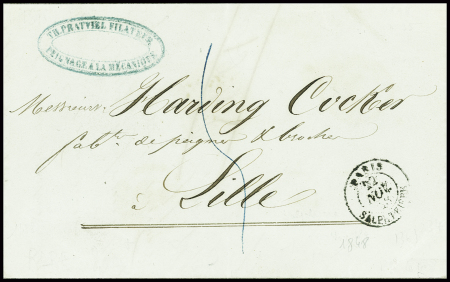 TH. PRATVIEL FILATEUR.
PEIGNAGE A LA MECANIQUE
Messieurs Harding Cocker
fab.ts de peignes & broches
à Lille
PARIS
NOV.
SALPÊTRIÈRE
1848